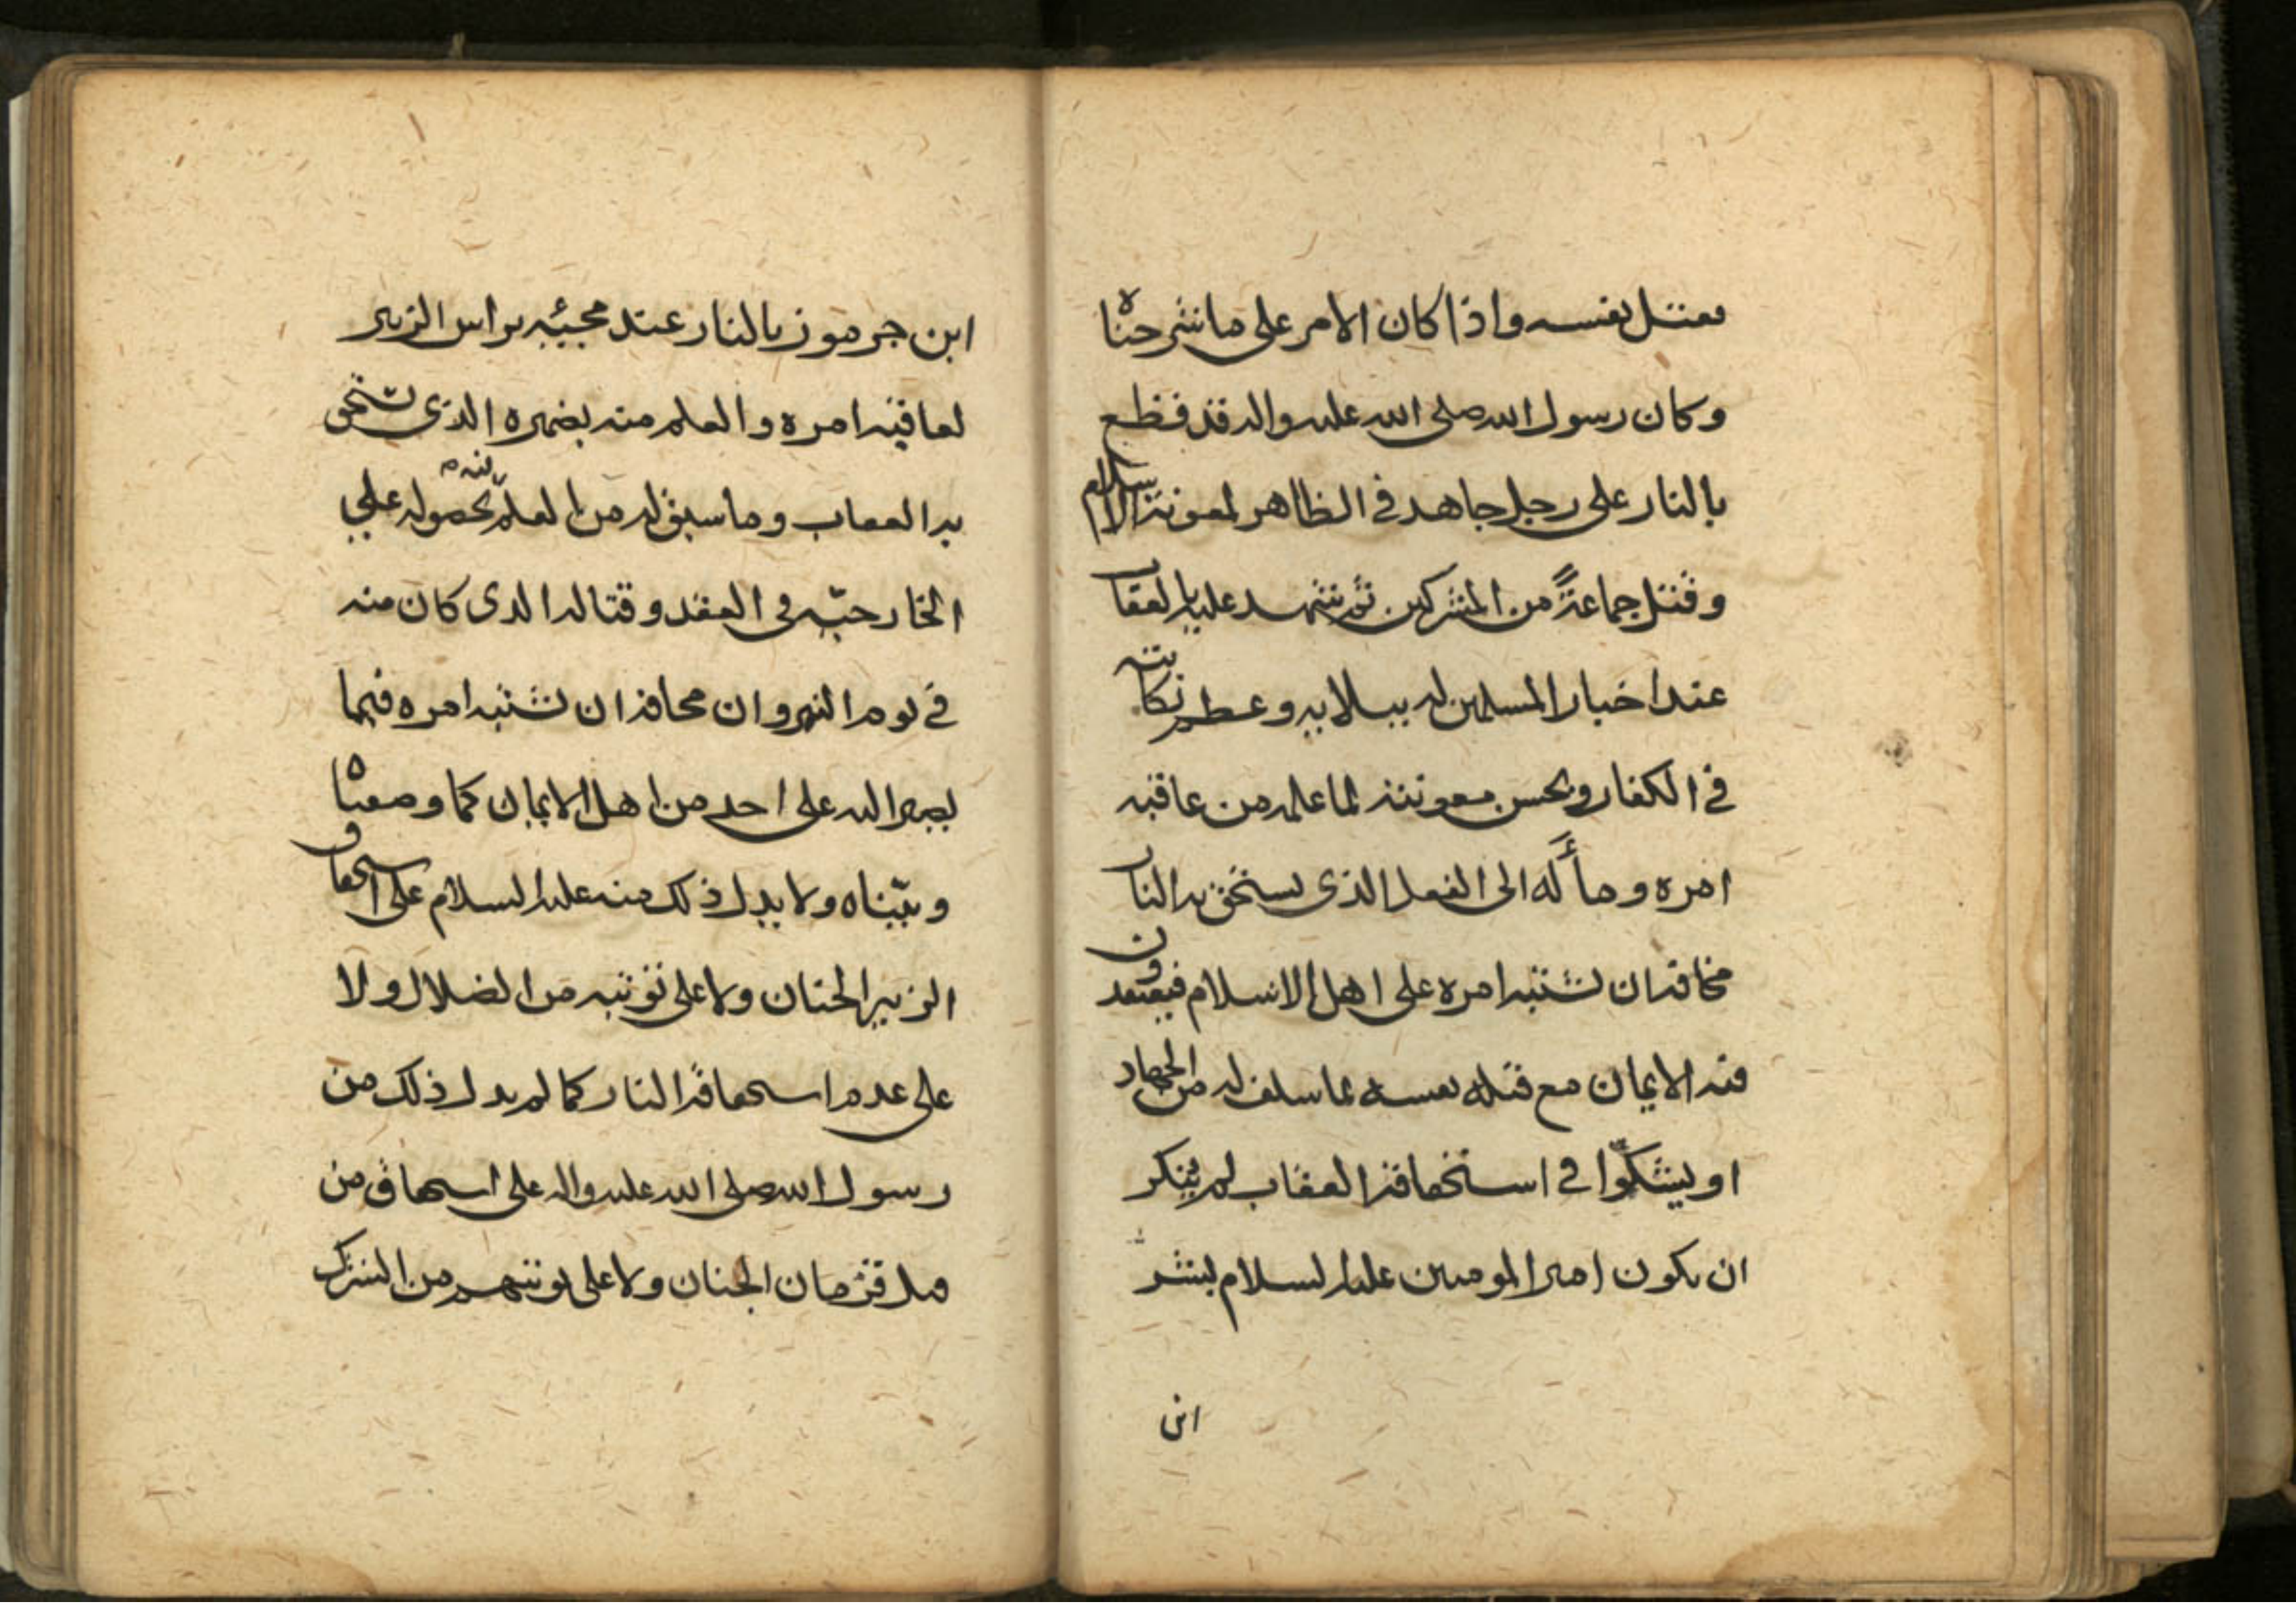 بقتل نفسه واذا كان الامر على ما شرحناه
وكان رسول الله صلى الله عليه واله قد قطع
بالنار على رجل جاهد في الظاهر لمعونة الاسلام
وقتل جماعةً من المشركين ثم شهد عليه بالعقاب
عند اخبار المسلمين له ببلايه وعظم نكايته
في الكفار وبحسن معونته لما علمه من عاقبه
امره ومأله الى الفعل الذي يستحق به النار
مخافة ان تشتبه امره على اهل الاسلام فيعتقدون
فيه الايمان مع قتله نفسه بما سلف له من الجهاد
او يشكّوا في استحقاقه العقاب لم ينكر
ان يكون امير المومنين عليه السلام بشر
ابن
ابن جرموز بالنار عند مجيئه براس الزبير
لعاقبه امره والعلم منه بضميره الذي يستحق
به العقاب وما سبق له من العلم بحصوله على
الخارجيّه في العقد وقتاله الذي كان منه
في يوم النهروان مخافة ان تشتبه امره فيما
يصير اليه على احد من اهل الايمان كما وصفناه
وبيّناه ولا يدل ذلك منه عليه السلام على استحقاق
الزبير الجنان ولا على توبته من الضلال ولا
على عدم استحقاقه النار كما لم يدل ذلك من
رسول الله صلى الله عليه واله على استحقاق من
قتله قزمان الجنان ولا على توبتهم من الشرك